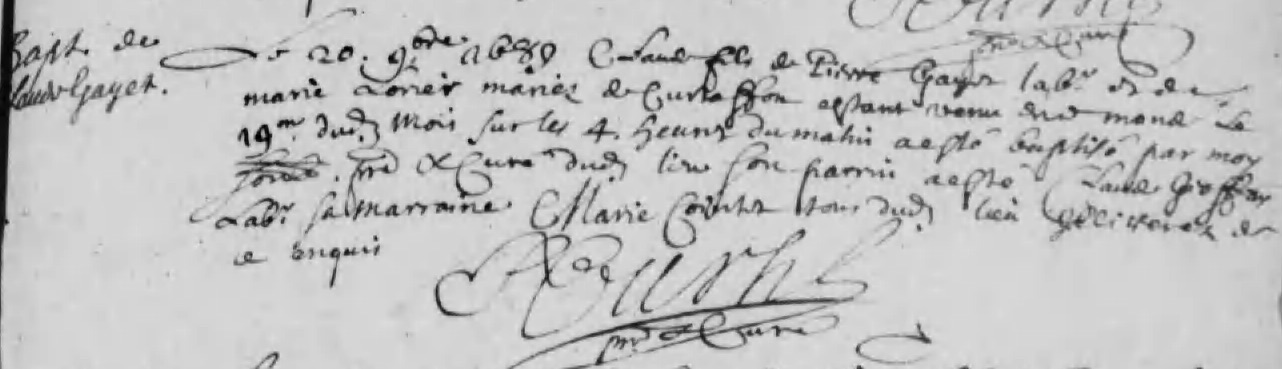 Bapt. de
Claude Gayet.
Le 20. 9bre 1689 Claude fils de Pierre Gayet labr et de
marie mariez de Curtaffon estant venu au monde le
19me dud. mois sur les 4. heures du matin a esté baptisé par moy
pre & Curé dud. lieu son parrin a esté Claude
Labr sa marraine Marie Cointet tous dud. lieu illiterez de
ce enquis
pre & Curé